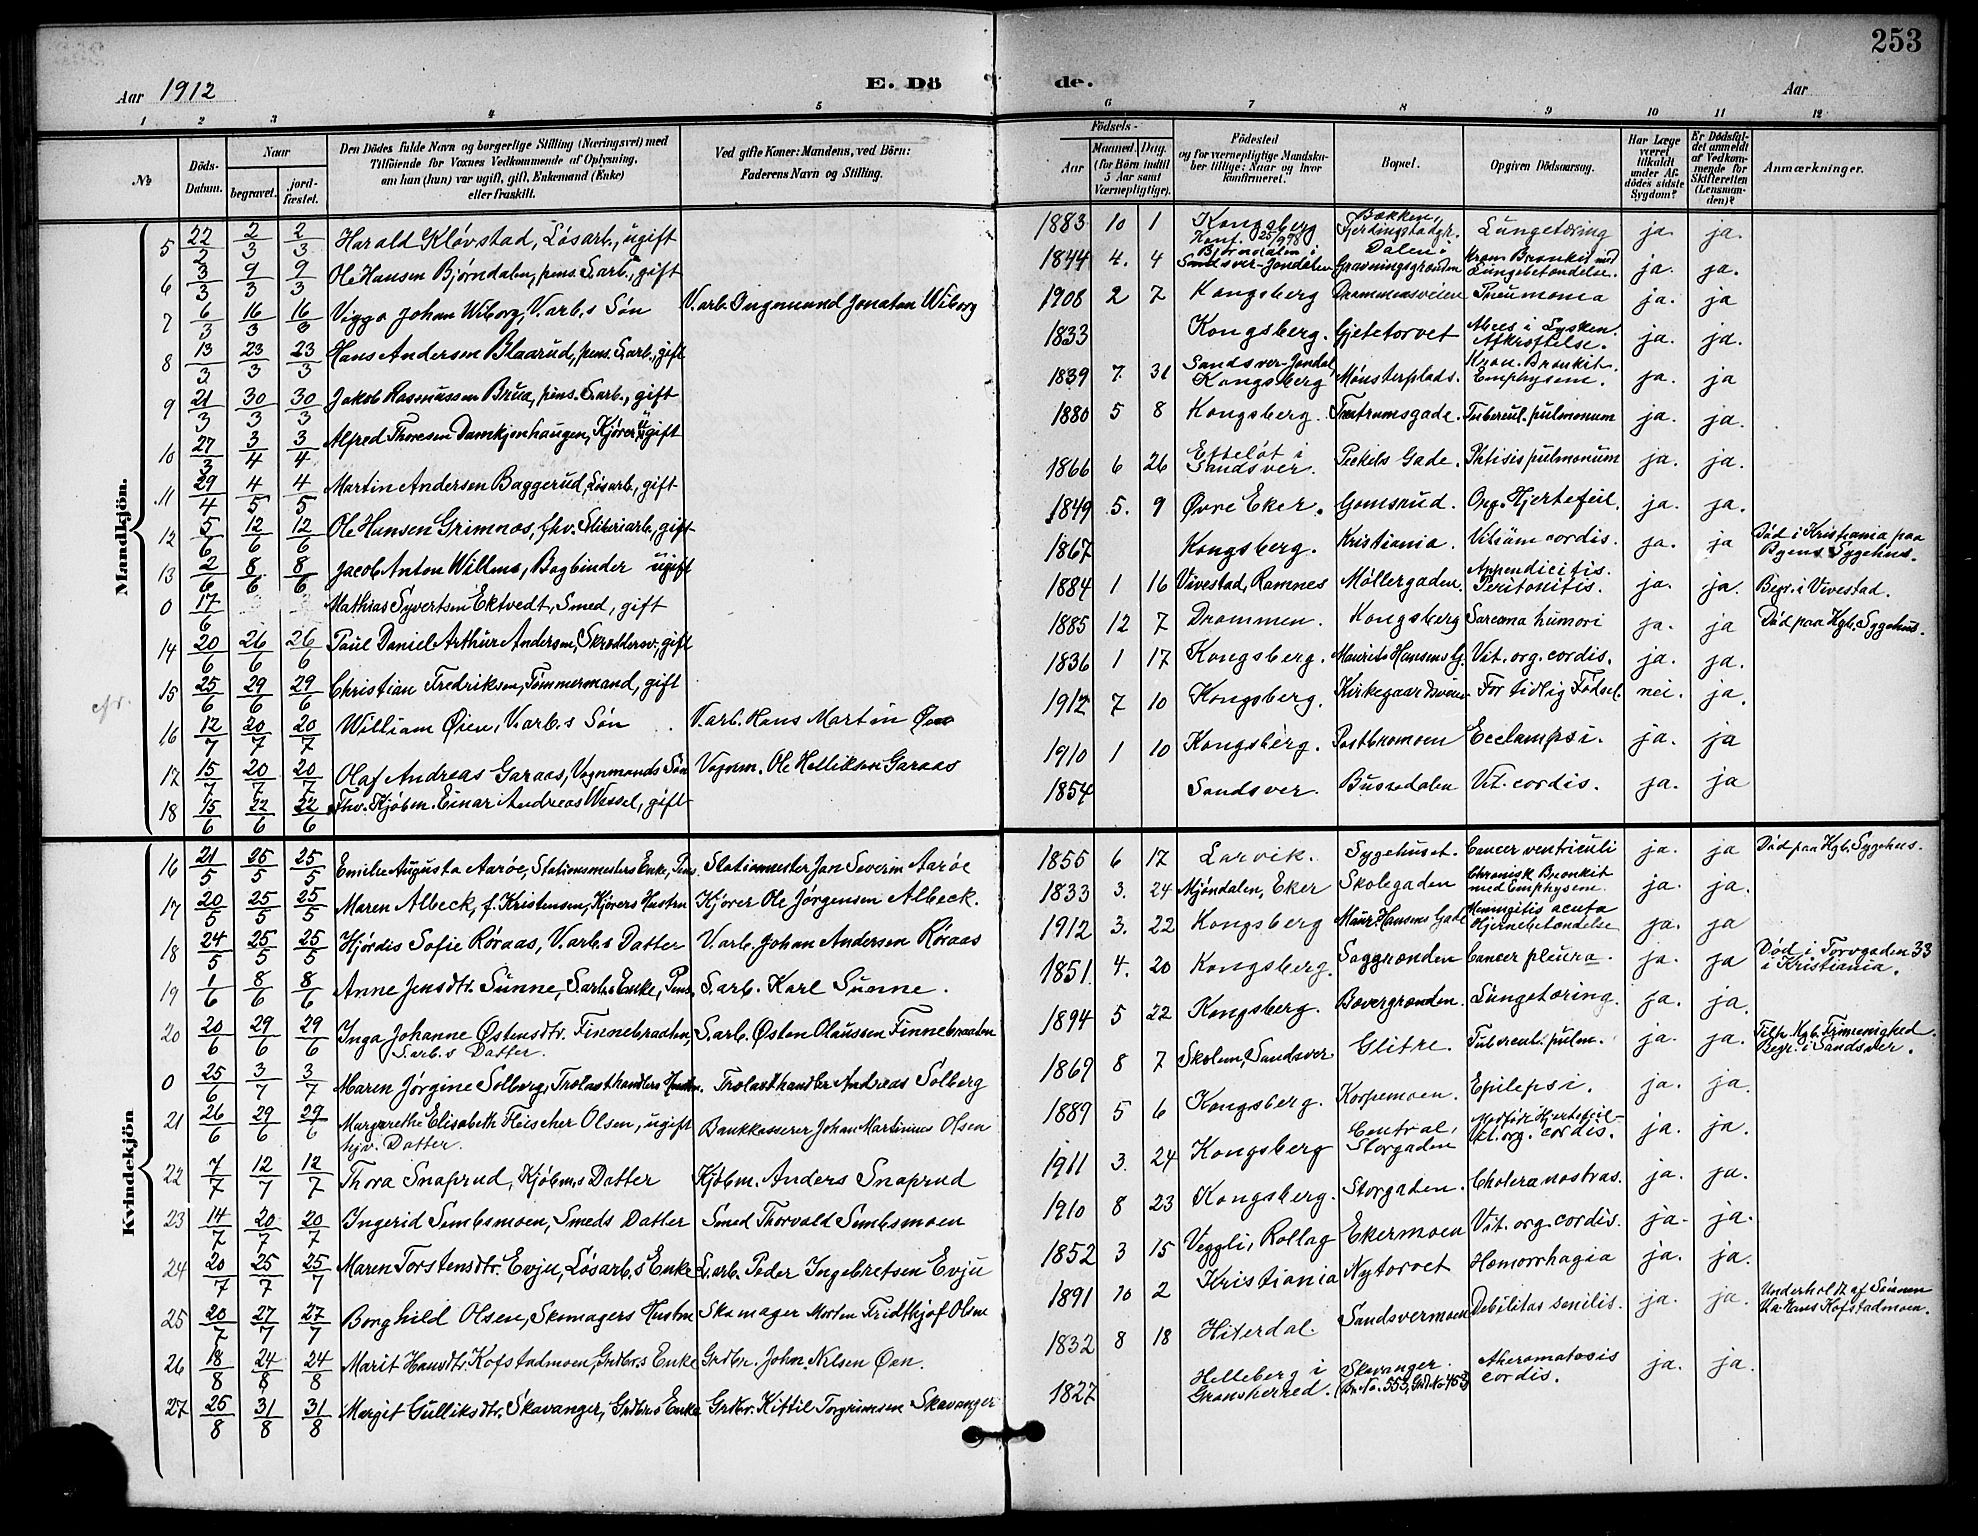 253
Aar 1912 E. Dö de. Aar
1 2 3 4 5 6 7 8 9 10 11 12
No Döds-Datum. Naar begravet. jordfæstet. Den Dödes fulde Navn og borgerlige Stilling (Næringsvei) med Tilföiende for Voxnes Vedkommende af Oplysning, om han (hun) var ugift, gift, Enkemand (Enke) eller fraskilt. Ved gifte Koner: Mandens, ved Börn: Faderens Navn og Stilling. Födsels- Aar Maaned. Dag. (for Börn indtil 5 Aar samt Værnepligtige). Födested og for værnepligtige Mandskaber tillige: Naar og hvor konfirmeret. Bopæl. Opgiven Dödsaarsag. Har Læge været tilkaldt under Afdödes sidste Sygdom? Er Dödsfaldet anmeldt af Vedkommende for Skifteretten (Lensmanden)? Anmærkninger.
Mandkjön.
5 22/2 2/3 2/3 Harald Kløvstad, Løsarb., ugift 1883 10 1 Kongsberg Konf. 25/9 98 Bækken, Fjerdingstadgr. Lungetæring ja. ja.
6 3/3 9/3 9/3 Ole Hansen Bjørndalen, pens. S.arb., gift 1844 4. 4 Bjørndalen i Sandsver-Jondalen Dalen i Gravningsgrænden Kron. Bronkit med Lungebetændelse. ja. ja.
7 6/3 16/3 16/3 Viggo Johan Wiborg, V.arb.s Søn V.arb. Ingmund Jonatan Wiborg 1908 2 7 Kongsberg Drammensveien Pneumonia ja. ja
8 13/3 23/3 23/3 Hans Andersen Blaarud, pens. S.arb., gift 1833 Kongsberg. Gjetetorvet Absces i Lysken. Afkræftelse. ja. ja.
9 21/3 30/3 30/3 Jakob Rasmussen Brua, pens. S.arb., gift 1839 7. 31 Sandsver-Jondal, Kongsberg Mønsterplads. Kron. Bronkit. Emphysem. ja. ja
10 27/3 3/4 3/4 Alfred Thoresen Damkjernhaugen, Kjører ugift 1880 5 8 Kongsberg. Tubercul. pulmonum ja. ja.
11 29/4 4/5 4/5 Martin Andersen Baggerud, Løsarb., gift 1866 6 26 Etteløt i Sandsver. Peckels Gade. Phtisis pulmonum ja. ja.
12 5/6 12/6 12/6 Ole Hansen Grimnæs, fhv. Sliberiarb., gift 1849 5. 9 Øvre Eker. Gomsrud. Org. Hjertefeil. ja. ja.
13 2/6 8/6 8/6 Jacob Anton Willms, Bogbinder ugift 1867 Kongsberg. Kristiania. Vitium cordis. ja. ja Død i Kristiania paa Byens Sygehus.
0 17/6 Mathias Syvertsen Ektvedt, Smed, gift 1884 1 16 Vivestad, Ramnes Møllergaden. Appendicitis. Peritonitis. ja. ja. Begr. i Vivestad.
14 20/6 26/6 26/6 Paul Daniel Arthur Andersen, Skræddersv., gift 1885 12 7 Drammen. Kongsberg Sarcoma humori ja. ja Død paa Kgb. Sygehus.
cfr. 15 25/6 29/6 29/6 Christian Fredriksen, Tømmermand, gift 1836 1 17 Kongsberg. Maurits Hansens G. Vit. org. cordis. ja. ja.
16 12/7 20/7 20/7 William Øien, V.arb.s Søn V.arb. Hans Martin Øien 1912 7 10 Kongsberg. Kirkegaardsveien For tidlig Fødsel. nei. ja.
17 15/7 20/7 20/7 Olaf Andreas Garaas, Vognmands Søn Vognm. Ole Helliksen Garaas 1910 1 10 Kongsberg. Postbromoen Ecclampsi. ja. ja
18 15/6 22/6 22/6 Fhv. Kjøbm. Einar Andreas Wessel, gift 1854 Sandsver. Bussedalen Vit. cordis. ja. ja
Kvindekjön
16 21/5 25/5 25/5 Emilie Augusta Aarøe, Stationsmesters Enke, Pens. Stationmester Jan Severin Aarøe 1855 6 17 Larvik. Sygehuset. Cancer ventriculi ja. ja Død paa Kgb. Sygehus.
17 20/5 25/5 25/5 Maren Albeck, f. Kristensen, Kjørers Hustru Kjører Ole Jørgensen Albeck. 1833 3. 24 Mjøndalen, Eker Skolegaden Chronisk Bronkit med Emphysem. ja. ja.
18 24/5 25/5 25/5 Hjørdis Sofie Røraas, V.arb.s Datter V.arb. Johan Andersen Røraas 1912 3. 22 Kongsberg Maur. Hansens Gade Meningitis acuta Hjernebetændelse ja. ja
19 1/6 8/6 8/6 Anne Jensdtr. Sunne, S.arb.s Enke, Pens. S.arb. Karl Sunne. 1851 4. 20 Kongsberg. Saggrænden Cancer pleura. ja. ja Død i Torvgaden 33 i Kristiania.
20 20/6 29/6 29/6 Inga Johanne Østensdtr. Finnebraaten, S.arb.s Datter. S.arb. Østen Olaussen Finnebraaten 1894 5 22 Kongsberg. Bævergrænden. Lungetæring. ja. ja.
0 25/6 3/7 3/7 Maren Jørgine Solberg, Trælasthandlers Hustru. Trælasthandler Andreas Solberg 1869 8 7 Skolem, Sandsver Glitre. Tubercul. pulm. ja. ja. Tilh. Kgb. Frimenighed. Begr. i Sandsver.
21 26/6 29/6 29/6 Margarethe Elisabeth Fleischer Olsen, ugift hjv. Datter. Bankkasserer Johan Martinius Olsen 1889 5 6 Kongsberg. Korpemoen. Epilepsi. ja. ja.
22 7/7 12/7 12/7 Thora Snaprud, Kjøbm.s Datter Kjøbm. Anders Snaprud 1911 3. 24 Kongsberg Central, Storgaden Medfødt Hjertefeil- Vit. org. cordis. ja. ja.
23 14/7 20/7 20/7 Ingerid Sembsmoen, Smeds Datter Smed Thorvald Sembsmoen 1910 8 23 Kongsberg. Storgaden. Cholera nostras. ja. ja.
24 20/7 25/7 25/7 Maren Torstensdtr. Evju, Løsarb.s Enke L.arb. Peder Ingebretsen Evju 1852 3 15 Veggli, Rollag Ekermoen Vit. org. cordis. ja. ja.
25 20/7 27/7 27/7 Borghild Olsen, Skomagers Hustru Skomager Morten Fridthjof Olsen 1891 10 2 Kristiania Nytorvet Hæmorrhagia ja. ja.
26 18/8 24/8 24/8 Marit Hansdtr. Kofstadmoen, Grdbr.s Enke Grdbr. John Nilsen Øen. 1832 8 18 Hiterdal. Sandsvermoen Debilitas senilis. ja. ja. Underholdt af Sønnen V.a. Hans Kofstadmoen.
27 25/8 31/8 31/8 Margit Gulliksdtr. Skavanger, Grdbr.s Enke Grdbr. Kittil Torgrimsen Skavanger 1827 Helleberg i Gransherred. Skavanger. (Br. No. 553, Grd. No. 453) Atheromatosis cordis. ja. ja.